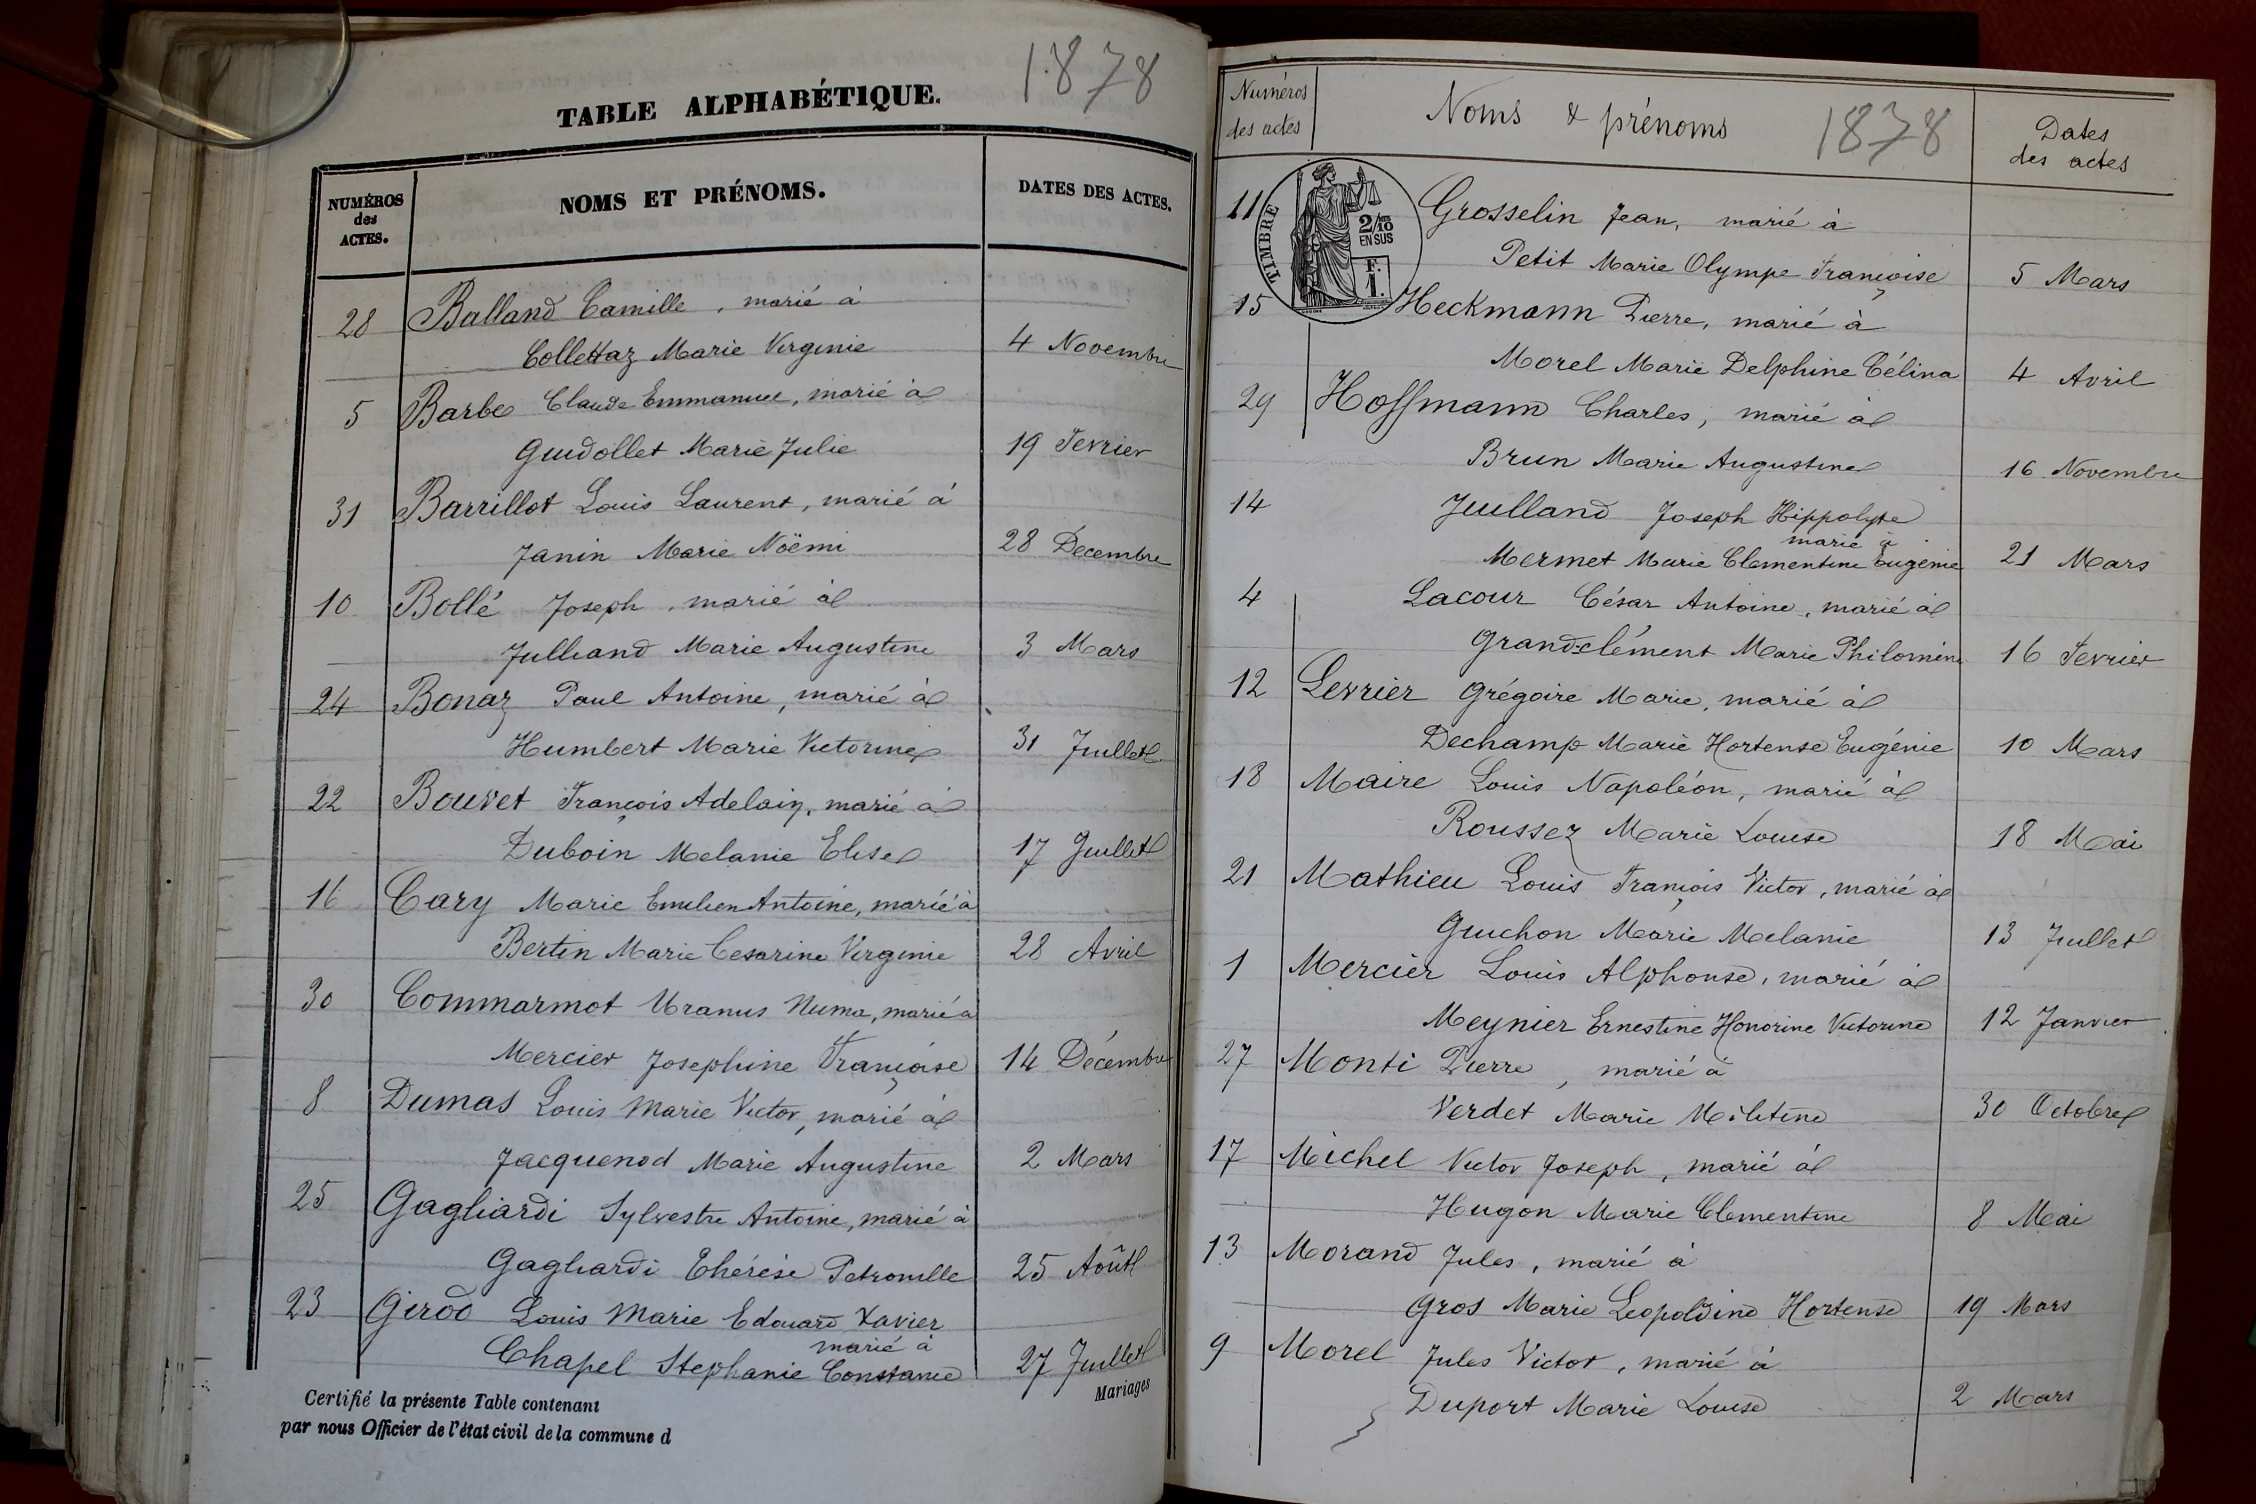 1878
TABLE ALPHABÉTIQUE.
NUMÉROS
des
ACTES.
NOMS ET PRÉNOMS.
DATES DES ACTES.
28 Balland Camille, marié à
Collettaz Marie Virginie 4 Novembre
5 Barbe Claude Emmanuel, marié à
Guidollet Marie Julie 19 Fevrier
31 Barrillot Louis Laurent, marié à
Janin Marie Noëmi 28 Decembre
10 Bollé Joseph, marié à
Julliand Marie Augustine 3 Mars
24 Bonaz Paul Antoine, marié à
Humbert Marie Victorine 31 Juillet
22 Bouvet François Adelain, marié à
Duboin Melanie Elise 17 Juillet
16 Cary Marie Emilien Antoine, marié à
Bertin Marie Cesarine Virginie 28 Avril
30 Commarmot Uranus Numa, marié à
Mercier Josephine Françoise 14 Décembre
8 Dumas Louis Marie Victor, marié à
Jacquenod Marie Augustine 2 Mars
25 Gagliardi Sylvestre Antoine, marié à
Gagliardi Thérèse Petronille 25 Août
23 Girod Louis Marie Edouard Xavier
marié à
Chapel Stephanie Constance 27 Juillet
Mariages
Certifié la présente Table contenant
par nous Officier de l'état civil de la commune d
Numéros
des actes
Noms & prénoms
1878
Dates
des actes
TIMBRE
2/10
EN SUS
F.
1.
11 Grosselin Jean, marié à
Petit Marie Olympe Françoise 5 Mars
15 Heckmann Pierre, marié à
Morel Marie Delphine Célina 4 Avril
29 Hoffmann Charles, marié à
Brun Marie Augustine 16 Novembre
14 Juilland Joseph Hippolyte
marié à
Mermet Marie Clementine Eugénie 21 Mars
4 Lacour César Antoine, marié à
Grand-clément Marie Philomène 16 Fevrier
12 Levrier Grégoire Marie, marié à
Dechamp Marie Hortense Eugénie 10 Mars
18 Maire Louis Napoléon, marié à
Roussez Marie Louise 18 Mai
21 Mathieu Louis François Victor, marié à
Guichon Marie Melanie 13 Juillet
1 Mercier Louis Alphonse, marié à
Meynier Ernestine Honorine Victorine 12 Janvier
27 Monti Pierre, marié à
Verdet Marie Militine 30 Octobre
17 Michel Victor Joseph, marié à
Hugon Marie Clementine 8 Mai
13 Morand Jules, marié à
Gros Marie Leopoldine Hortense 19 Mars
9 Morel Jules Victor, marié à
Duport Marie Louise 2 Mars